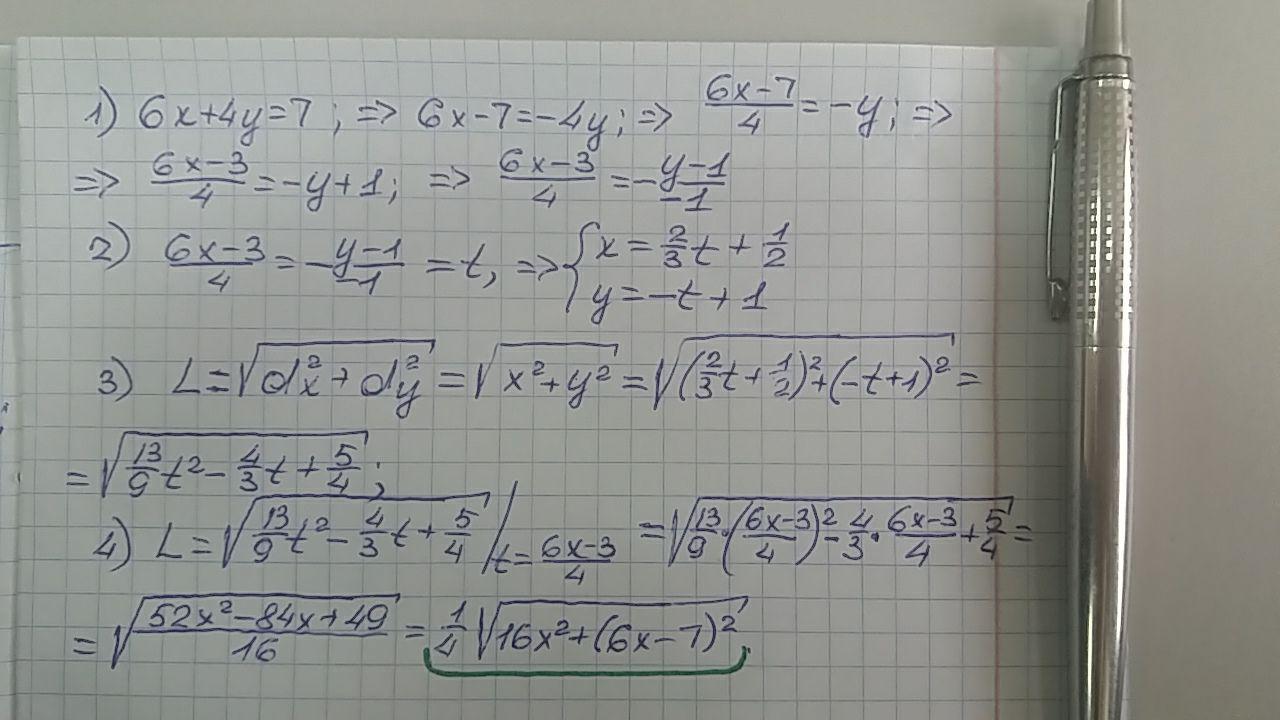 1) 6x+4y=7 ; => 6x-7=-4y; => (6x-7)/4 = -y; =>
=> (6x-3)/4 = -y+1; => (6x-3)/4 = -(y-1)/-1
2) (6x-3)/4 = -(y-1)/-1 = t, => { x = 2/3 t + 1/2
y = -t + 1
3) L = √(d²x + d²y) = √(x²+y²) = √((2/3 t + 1/2)² + (-t+1)²) =
= √(13/9 t² - 4/3 t + 5/4) ;
4) L = √(13/9 t² - 4/3 t + 5/4) / t = (6x-3)/4 = √(13/9 · ((6x-3)/4)² - 4/3 · (6x-3)/4 + 5/4) =
= √((52x² - 84x + 49)/16) = 1/4 √(16x² + (6x-7)²)